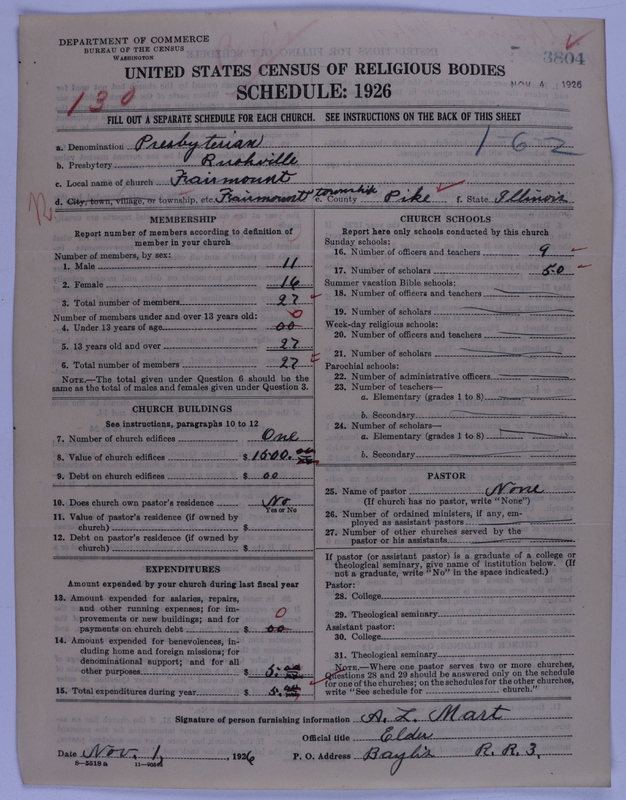 DEPARTMENT OF COMMERCE
BUREAU OF THE CENSUS
WASHINGTON
3804
UNITED STATES CENSUS OF RELIGIOUS BODIES
NOV 4 1926
SCHEDULE: 1926
130
FILL OUT A SEPARATE SCHEDULE FOR EACH CHURCH. SEE INSTRUCTIONS ON THE BACK OF THIS SHEET
1-62
a. Denomination Presbyterian
b. Presbytery Rushville
c. Local name of church Fairmount
d. City, town, village, or township, etc. Fairmount township e. County Pike f. State Illinois
MEMBERSHIP
Report number of members according to definition of
member in your church
Number of members, by sex:
1. Male 11
2. Female 16
3. Total number of members 27
Number of members under and over 13 years old: 0
4. Under 13 years of age 00
5. 13 years old and over 27
6. Total number of members 27
NOTE.—The total given under Question 6 should be the
same as the total of males and females given under Question 3.
CHURCH BUILDINGS
See instructions, paragraphs 10 to 12
7. Number of church edifices One
8. Value of church edifices $ 1500.
9. Debt on church edifices $ 00
10. Does church own pastor's residence No
Yes or No
11. Value of pastor's residence (if owned by
church) $
12. Debt on pastor's residence (if owned by
church) $
EXPENDITURES
Amount expended by your church during last fiscal year
13. Amount expended for salaries, repairs,
and other running expenses; for im-
provements or new buildings; and for 0
payments on church debt $ 00
14. Amount expended for benevolences, in-
cluding home and foreign missions; for
denominational support; and for all
other purposes $ 5.
15. Total expenditures during year $ 5.
CHURCH SCHOOLS
Report here only schools conducted by this church
Sunday schools:
16. Number of officers and teachers 9
17. Number of scholars 50
Summer vacation Bible schools:
18. Number of officers and teachers
19. Number of scholars
Week-day religious schools:
20. Number of officers and teachers
21. Number of scholars
Parochial schools:
22. Number of administrative officers
23. Number of teachers—
a. Elementary (grades 1 to 8)
b. Secondary
24. Number of scholars—
a. Elementary (grades 1 to 8)
b. Secondary
PASTOR
25. Name of pastor None
(If church has no pastor, write "None")
26. Number of ordained ministers, if any, em-
ployed as assistant pastors
27. Number of other churches served by the
pastor or his assistants
If pastor (or assistant pastor) is a graduate of a college or
theological seminary, give name of institution below. (If
not a graduate, write "No" in the space indicated.)
Pastor:
28. College
29. Theological seminary
Assistant pastor:
30. College
31. Theological seminary
NOTE.—Where one pastor serves two or more churches,
Questions 28 and 29 should be answered only on the schedule
for one of the churches; on the schedules for the other churches,
write "See schedule for church."
Signature of person furnishing information A. L. Mart
Official title Elder
Date Nov. 1, 1926 P. O. Address Baylis R. R. 3,
8-5518 a